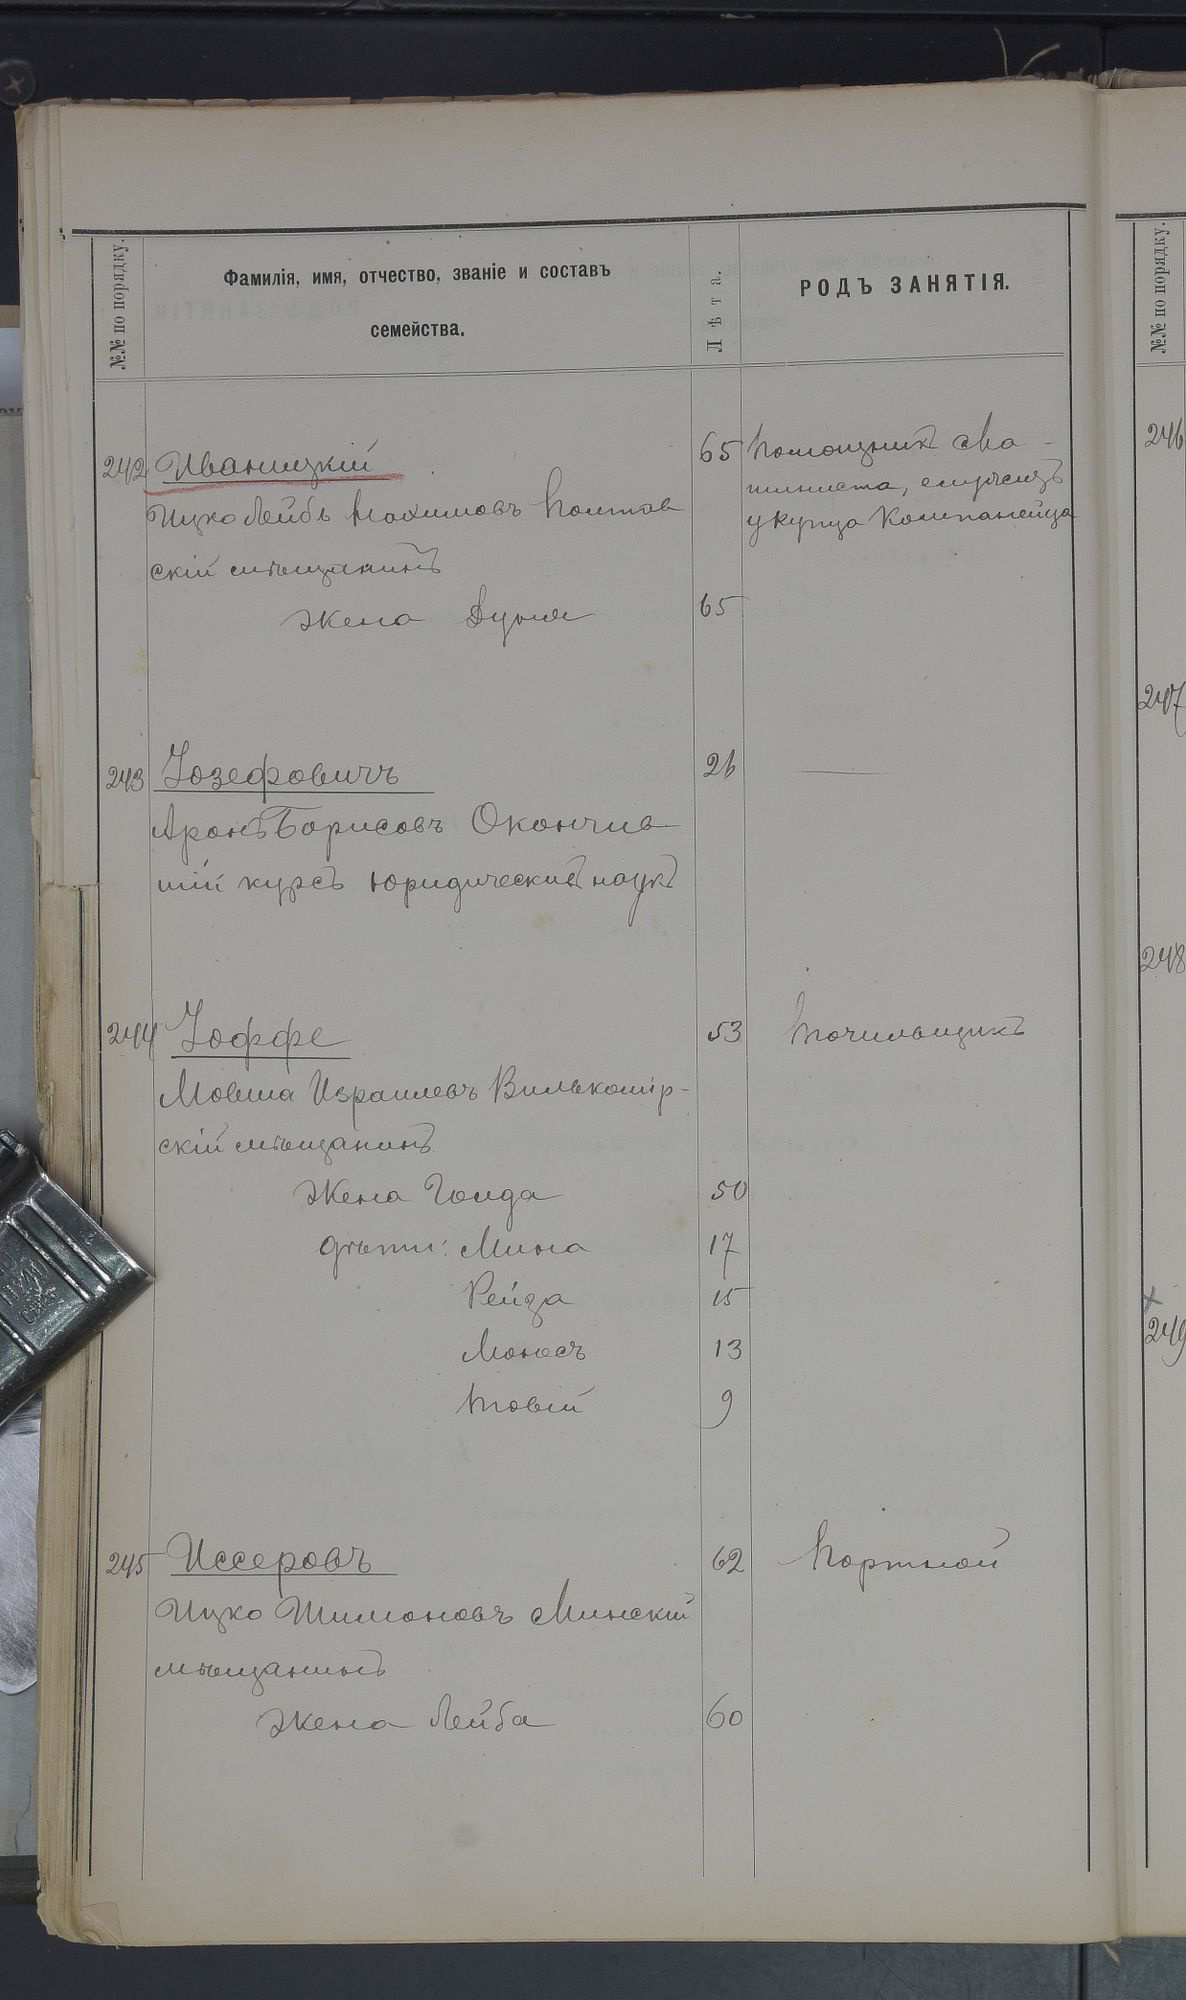 №№ по порядку.
Фамилія, имя, отчество, званіе и составъ
семейства.
Лѣта.
РОДЪ ЗАНЯТІЯ.
№№ по порядку.
242 Иваницкій 65 Помощникъ Ма-
Ицко Лейбъ Нохимовъ Полтав шиниста, служитъ
скій мѣщанинъ у купца Компанейца
Жена Дуня 65
243 Іозефовичъ 26 —
Аронъ Борисовъ Окончив
шій курсъ юридическихъ наукъ
244 Іоффе 53 Точильщикъ
Мовша Израилевъ Вилькомір-
скій мѣщанинъ
Жена Голда 50
дѣти: Мина 17
Рейза 15
Моносъ 13
Товій 9
245 Иссеровъ 62 Портной
Ицко Шимоновъ Минскій
мѣщанинъ
Жена Лейба 60
246
247
248
249